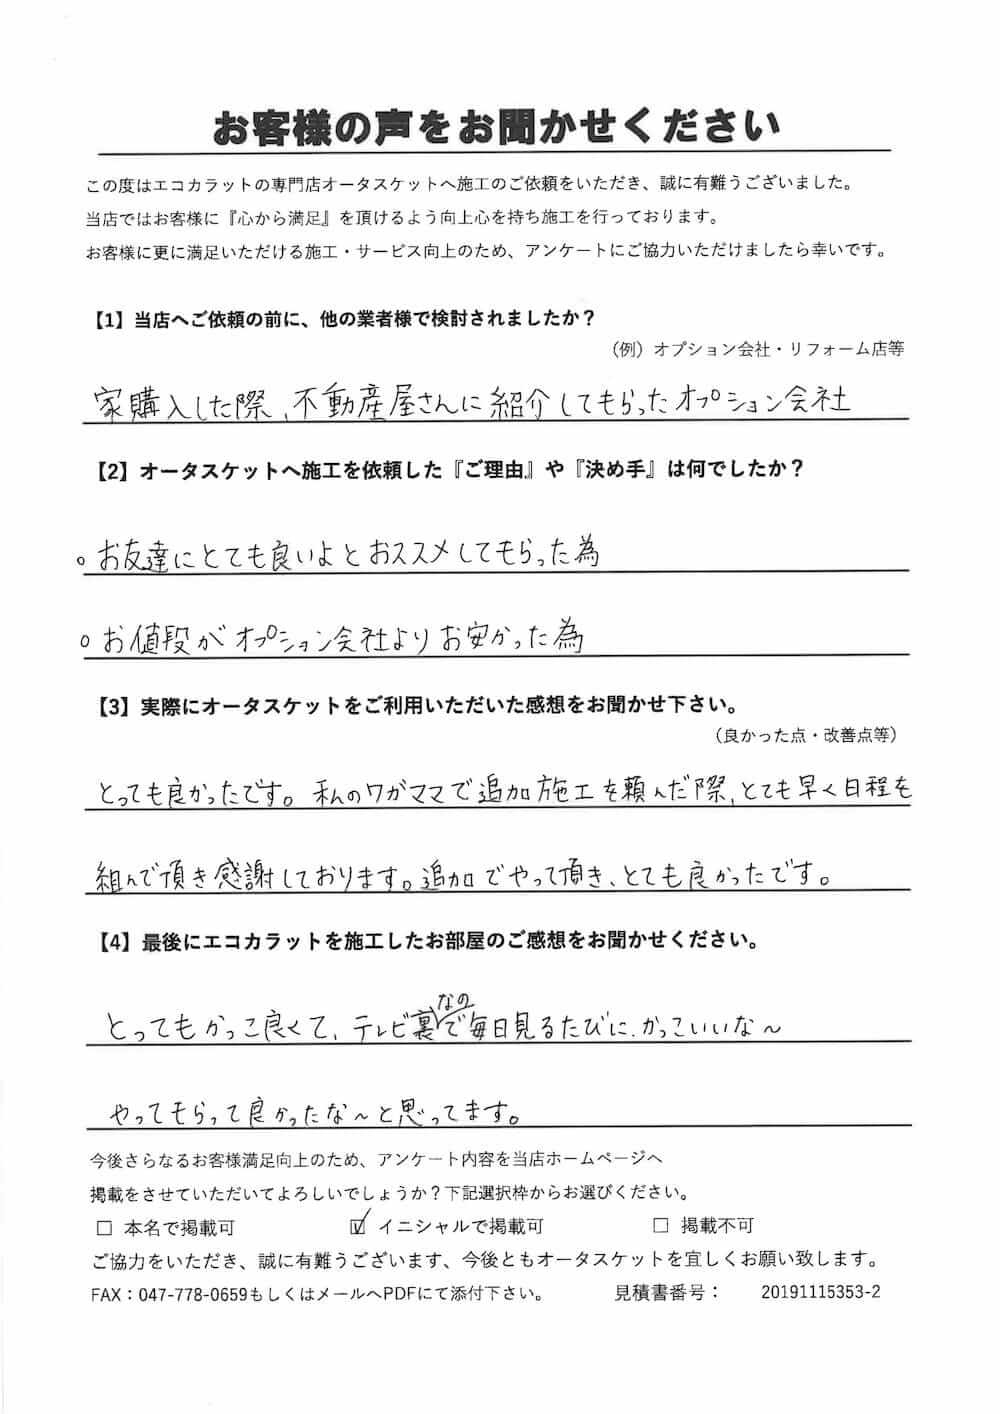 お客様の声をお聞かせください
この度はエコカラットの専門店オータスケットへ施工のご依頼をいただき、誠に有難うございました。
当店ではお客様に『心から満足』を頂けるよう向上心を持ち施工を行っております。
お客様に更に満足いただける施工・サービス向上のため、アンケートにご協力いただけましたら幸いです。
【1】当店へご依頼の前に、他の業者様で検討されましたか？
（例）オプション会社・リフォーム店等
家購入した際、不動産屋さんに紹介してもらったオプション会社
【2】オータスケットへ施工を依頼した『ご理由』や『決め手』は何でしたか？
。お友達にとても良いよとおススメしてもらった為
。お値段がオプション会社よりお安かった為
【3】実際にオータスケットをご利用いただいた感想をお聞かせ下さい。
（良かった点・改善点等）
とっても良かったです。私のワガママで追加施工を頼んだ際、とても早く日程を
組んで頂き感謝しております。追加でやって頂き、とても良かったです。
【4】最後にエコカラットを施工したお部屋のご感想をお聞かせください。
とってもかっこ良くて、テレビ裏なので毎日見るたびに、かっこいいな〜
やってもらって良かったな〜と思ってます。
今後さらなるお客様満足向上のため、アンケート内容を当店ホームページへ
掲載をさせていただいてよろしいでしょうか？下記選択枠からお選びください。
□ 本名で掲載可 ☑ イニシャルで掲載可 □ 掲載不可
ご協力をいただき、誠に有難うございます、今後ともオータスケットを宜しくお願い致します。
FAX：047-778-0659もしくはメールへPDFにて添付下さい。 見積書番号： 20191115353-2